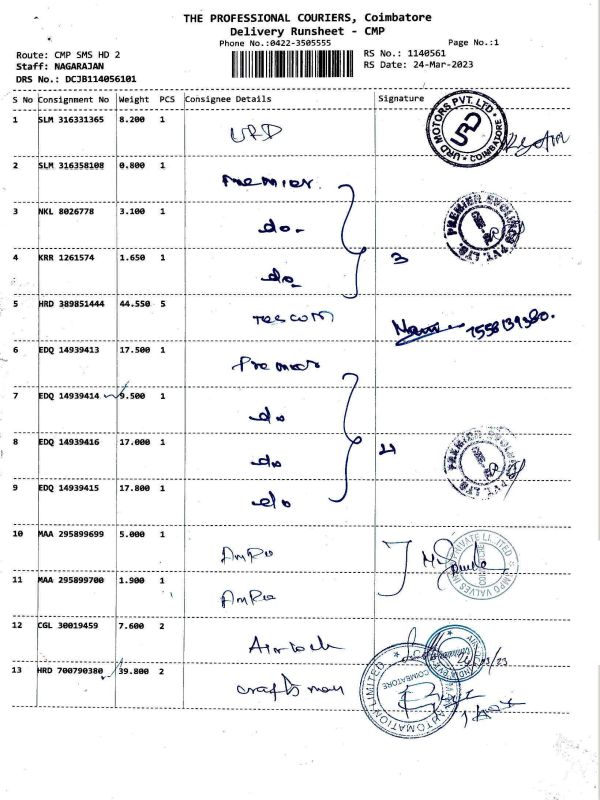 THE PROFESSIONAL COURIERS, Coimbatore
Delivery Runsheet - CMP
Phone No.:0422-3505555
Page No.:1
Route: CMP SMS HD 2
RS No.: 1140561
Staff: NAGARAJAN
RS Date: 24-Mar-2023
DRS No.: DCJB114056101
S No Consignment No Weight PCS Consignee Details Signature
1 SLM 316331365 8.200 1 URD
URD MOTORS PVT. LTD. COIMBATORE
2 SLM 316358108 0.800 1 Premier
3 NKL 8026778 3.100 1 do
PREMIER EVOLVICS PVT. LTD.
4 KRR 1261574 1.650 1 do 3
5 HRD 389851444 44.550 5 Texcom
6 EDQ 14939413 17.500 1 Premier
7 EDQ 14939414 9.500 1 do
8 EDQ 14939416 17.000 1 do 4
PREMIER EVOLVICS PVT. LTD.
9 EDQ 14939415 17.800 1 do
10 MAA 295899699 5.000 1 Ampo
11 MAA 295899700 1.900 1 Ampo
12 CGL 30019459 7.600 2 Airlock
13 HRD 700790380 39.800 2 Craftsman
AUTOMATION LIMITED COIMBATORE